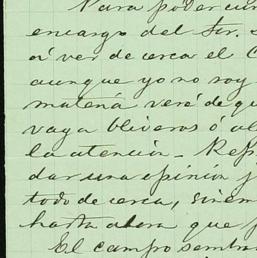 Para poder cum
encargo del Sr. S
a ver de cerca el C
aunque yo no soy
matena veré de qu
vaya bliveros ó al
la atencion - Rep
dar una opinion j
todo de cerca, sinem
hasta ahora que p
El campo sembra